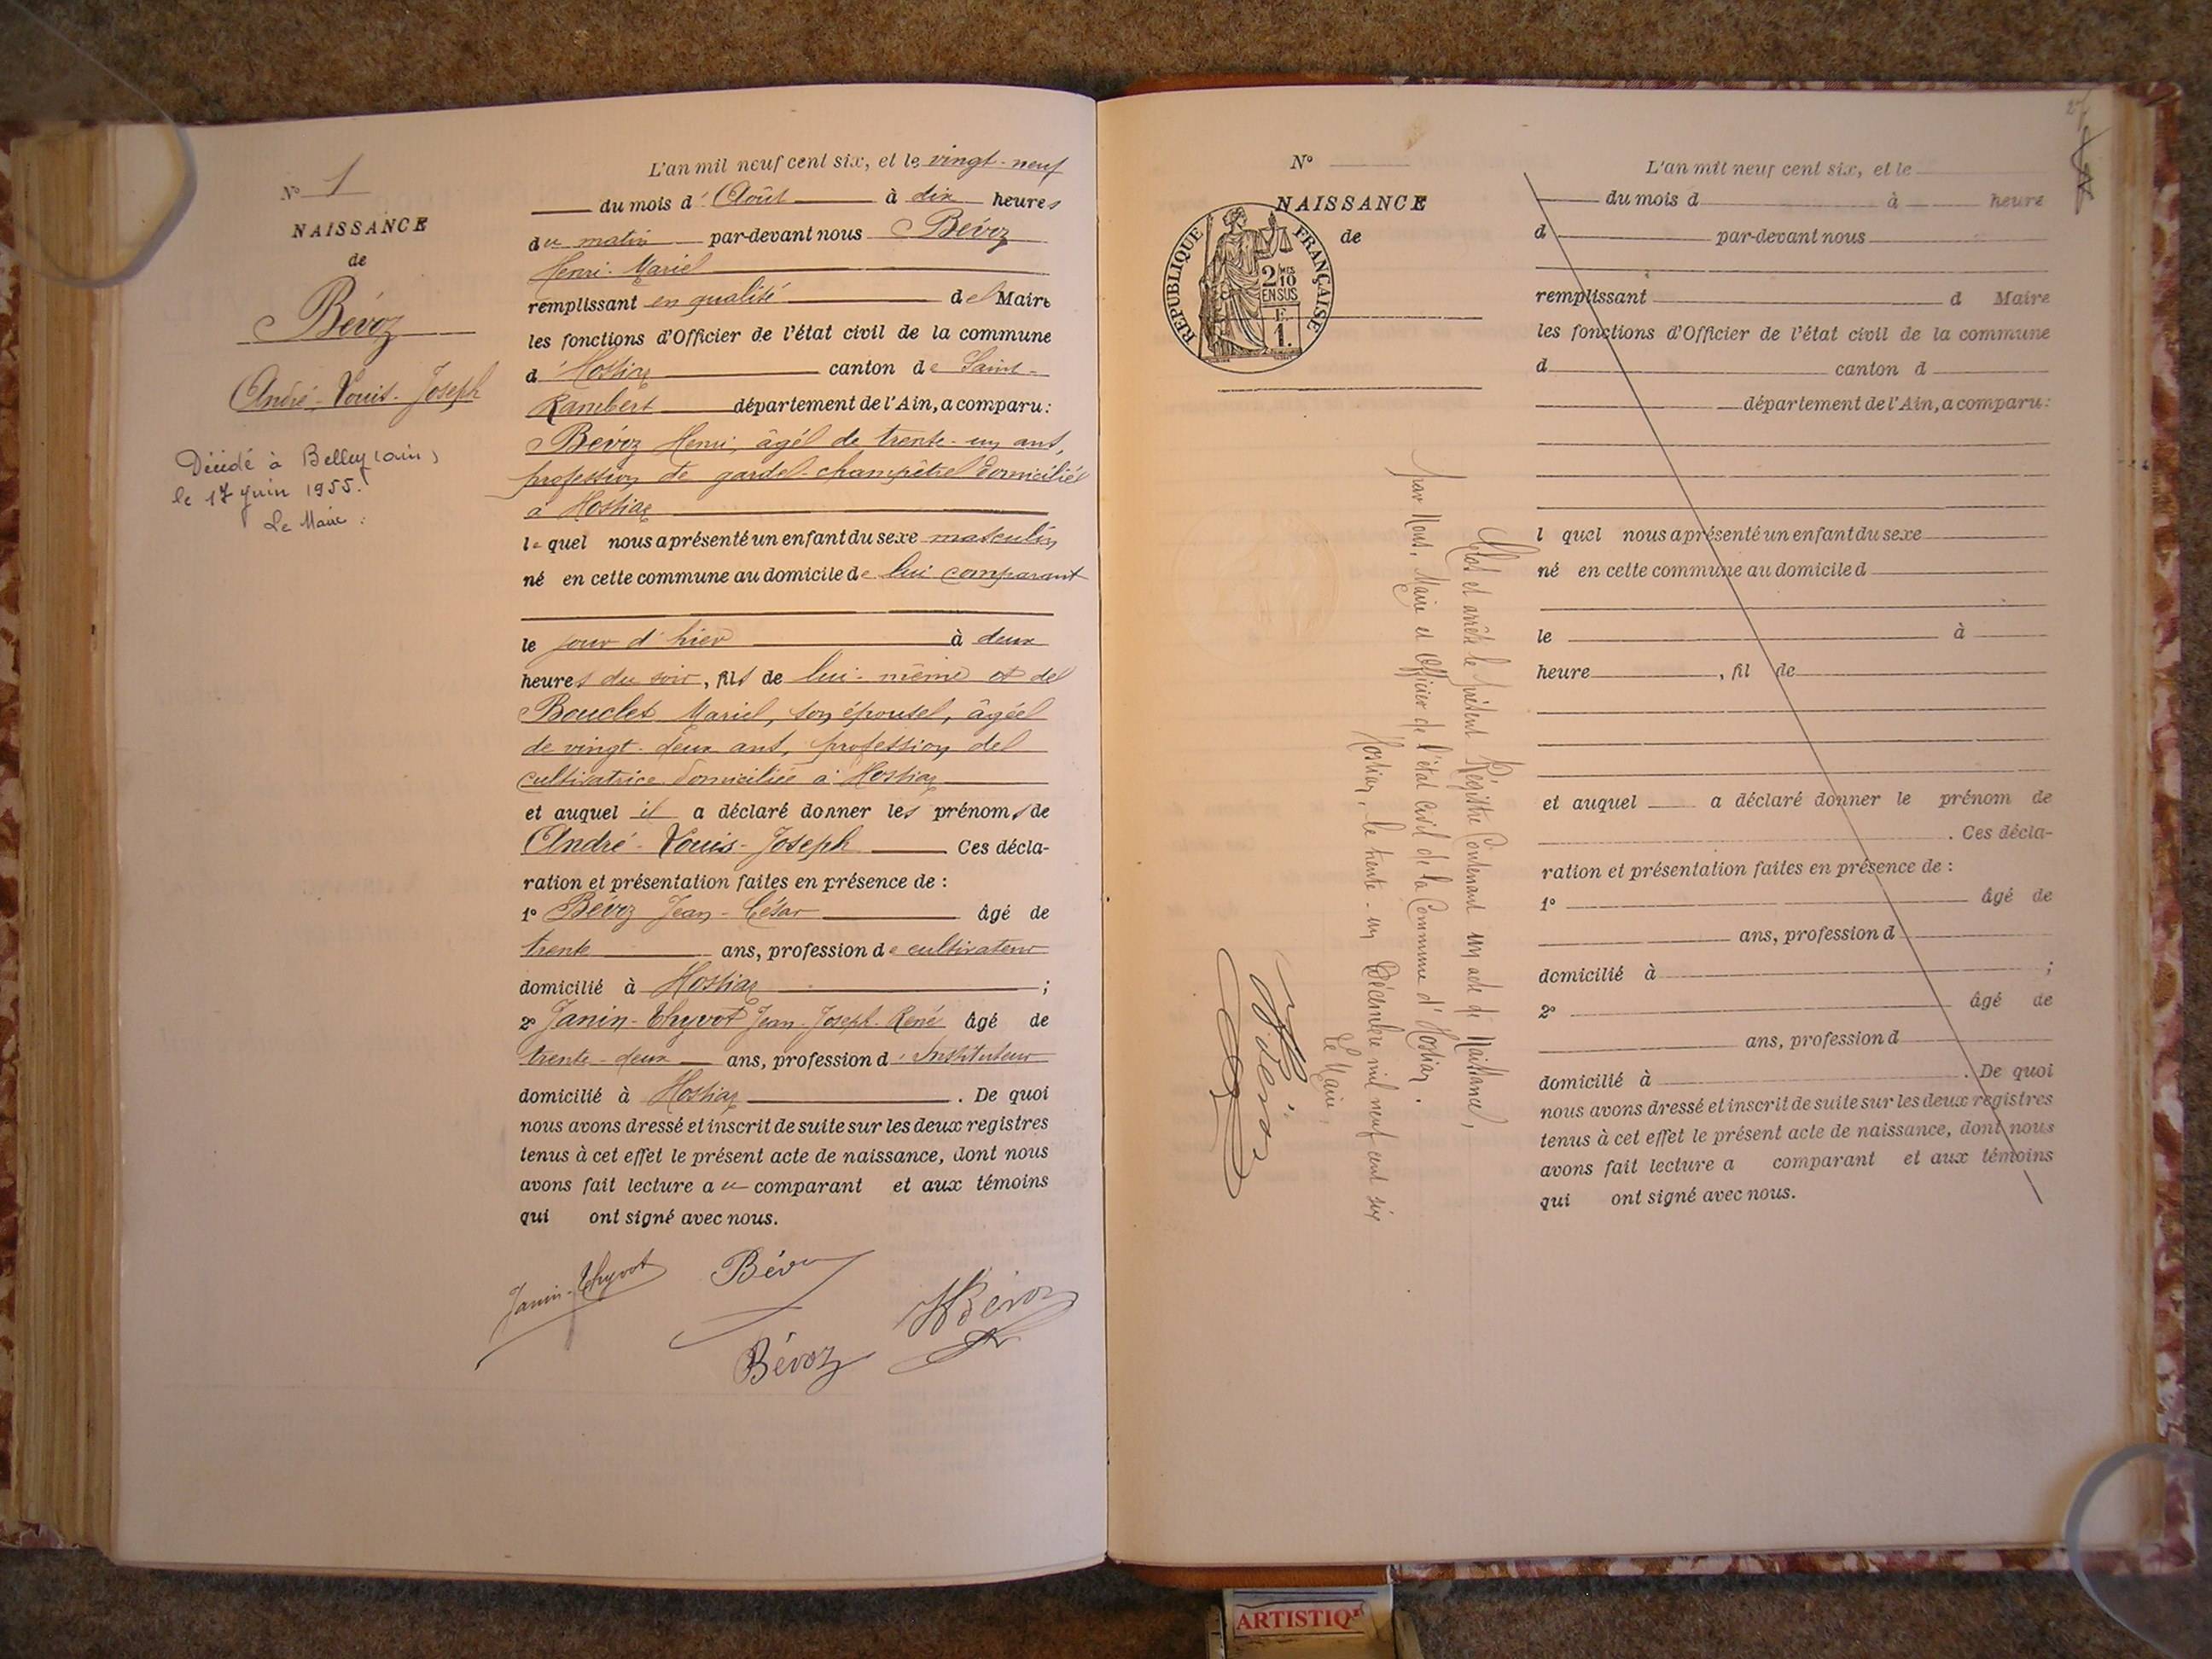 N° 1
NAISSANCE
de
Bévoz
André-Louis-Joseph
Décédé à Belley (Ain)
le 17 juin 1955.
Le Maire :
L'an mil neuf cent six, et le vingt-neuf
du mois d'Août à dix heures
du matin par-devant nous Bévoz
Henri-Marie
remplissant en qualité de Maire
les fonctions d'Officier de l'état civil de la commune
d'Hostiaz canton de Saint-
Rambert département de l'Ain, a comparu :
Bévoz Henri, âgé de trente-un ans,
profession de garde-champêtre domicilié
à Hostiaz
lequel nous a présenté un enfant du sexe masculin
né en cette commune au domicile de lui comparant
le jour d'hier à deux
heures du soir, fils de lui-même et de
Bouclet Marie, son épouse, âgée
de vingt-deux ans, profession de
cultivatrice domiciliée à Hostiaz
et auquel il a déclaré donner les prénoms de
André-Louis-Joseph Ces décla-
ration et présentation faites en présence de :
1° Bévoz Jean-César âgé de
trente ans, profession de cultivateur
domicilié à Hostiaz ;
2° Janin-Thyvot Jean-Joseph-René âgé de
trente-deux ans, profession d'Instituteur
domicilié à Hostiaz. De quoi
nous avons dressé et inscrit de suite sur les deux registres
tenus à cet effet le présent acte de naissance, dont nous
avons fait lecture au comparant et aux témoins
qui ont signé avec nous.
Janin-Thyvot Bévoz
HBévoz
Bévoz
N°
NAISSANCE
de
REPUBLIQUE FRANÇAISE
2/10 MES
EN SUS
F.
1.
Clos et arrêté le présent Registre Contenant un acte de Naissance,
par Nous, Maire et Officier de l'état Civil de la Commune d'Hostiaz.
Hostiaz, le trente-un Décembre mil neuf cent six
Le Maire,
HBévoz
L'an mil neuf cent six, et le
du mois d à heure
d par-devant nous
remplissant d Maire
les fonctions d'Officier de l'état civil de la commune
d canton d
département de l'Ain, a comparu :
l quel nous a présenté un enfant du sexe
né en cette commune au domicile d
le à
heure , fil de
et auquel a déclaré donner le prénom de
. Ces décla-
ration et présentation faites en présence de :
1° âgé de
ans, profession d
domicilié à ;
2° âgé de
ans, profession d
domicilié à . De quoi
nous avons dressé et inscrit de suite sur les deux registres
tenus à cet effet le présent acte de naissance, dont nous
avons fait lecture a comparant et aux témoins
qui ont signé avec nous.
ARTISTIQ